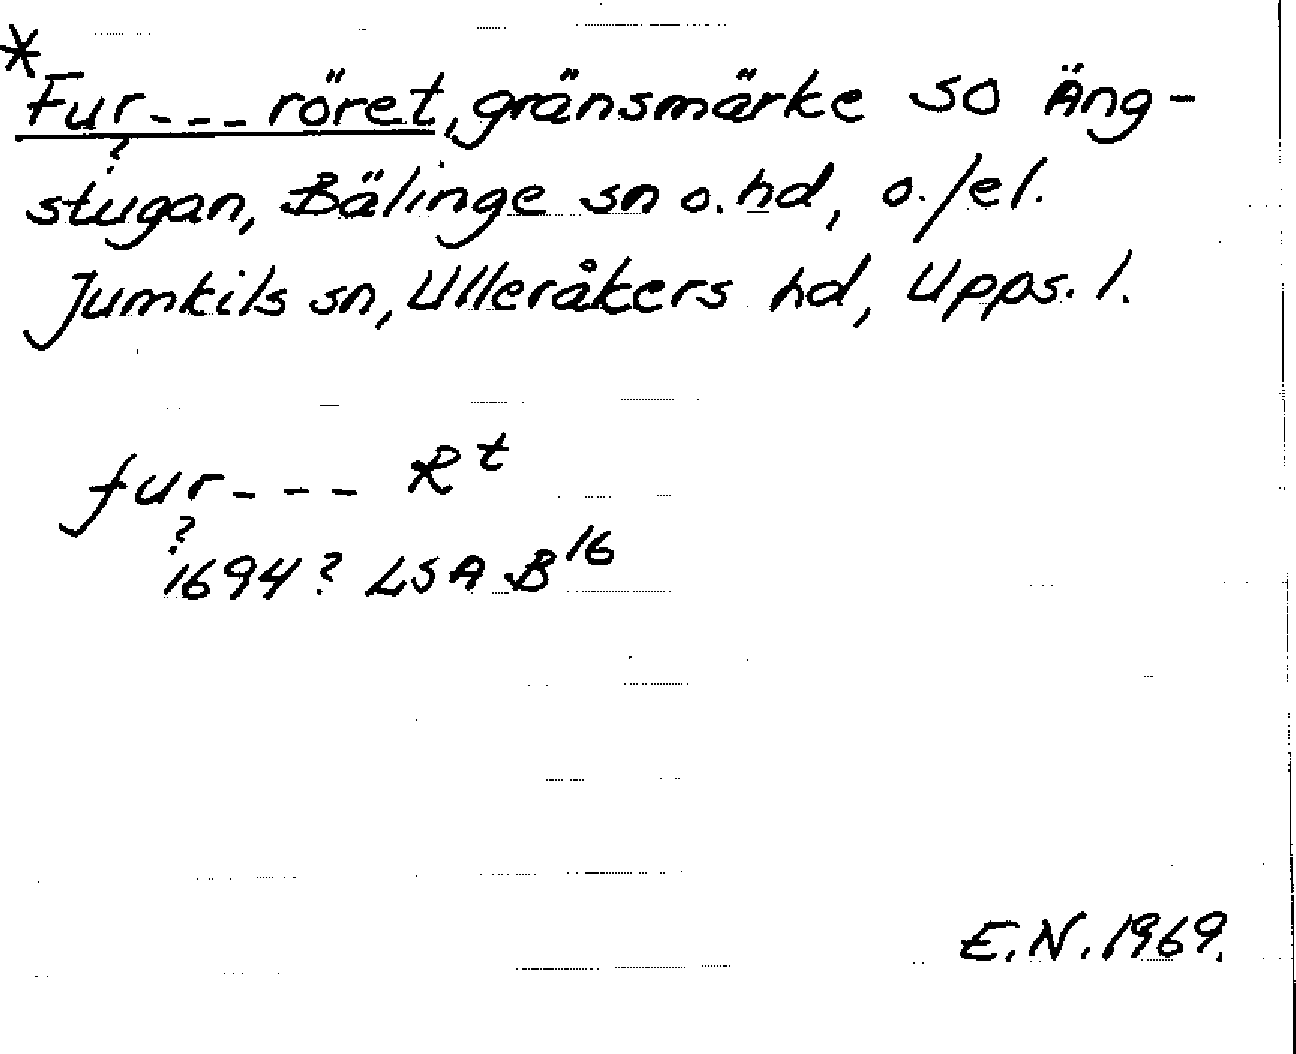 *
Fur---röret, gränsmärke SO Äng-
?
stugan, Bälinge sn o. hd, o./el.
Jumkils sn, Ulleråkers hd, Upps. l.
fur--- Rt
?
1694? LSA B16
E.N. 1969.